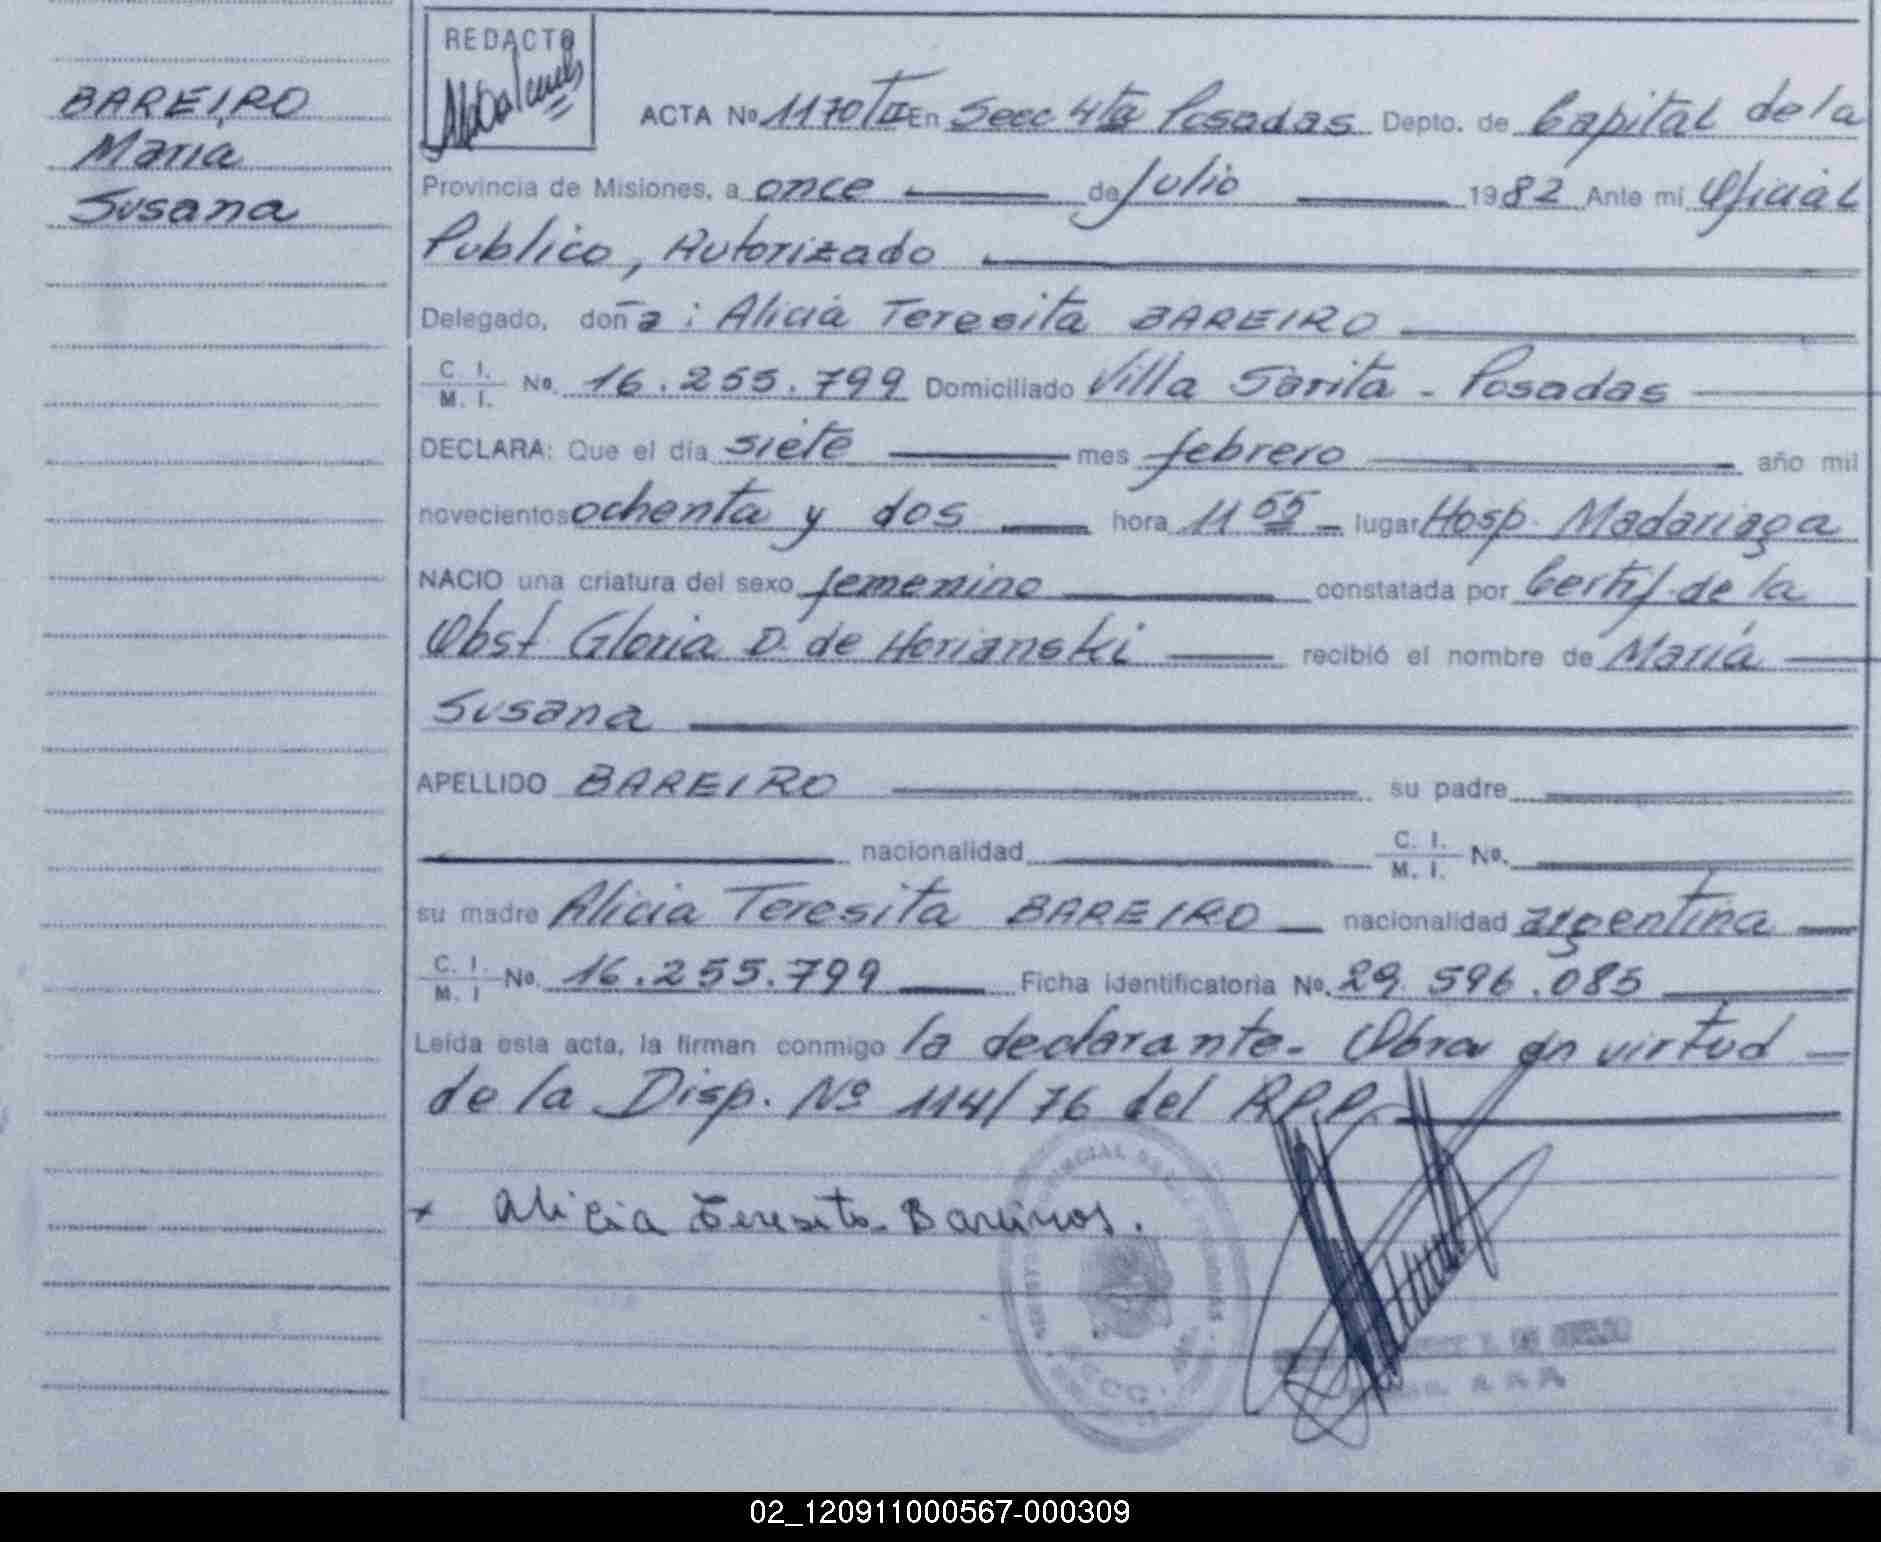 BAREIRO
Maria
Susana
REDACTO
ACTA No 1170 TII En Secc 4ta Posadas Depto. de Capital de la
Provincia de Misiones, a once de Julio 1982 Ante mi Oficial
Publico, Autorizado
Delegado, doña: Alicia Teresita BAREIRO
C. I. M. I. No. 16.255.799 Domiciliado Villa Sarita - Posadas
DECLARA: Que el día siete mes febrero año mil
novecientos ochenta y dos hora 11 55 lugar Hosp. Madariaga
NACIO una criatura del sexo femenino constatada por Certif. de la
Obst Gloria D. de Horianski recibió el nombre de María
Susana
APELLIDO BAREIRO su padre
nacionalidad C. I. M. I. No.
su madre Alicia Teresita BAREIRO nacionalidad argentina
C. I. M. I No. 16.255.799 Ficha identificatoria No. 29.596.085
Leída esta acta, la firman conmigo la declarante. Obrar en virtud
de la Disp. Nº 114/76 del R.P.P.
x Alicia Teresita Bareiros.
02_120911000567-000309